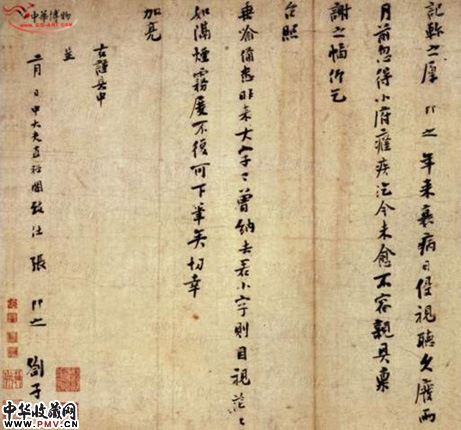 中华博物
記軫之厚 即之年來衰病日侵視聽久廢兩
月前忽得小府癃疾迄今未愈不容親具稟
謝之幅
台照
垂喻備悉昨來大字已曾納去若小字則目視茫茫
如滿煙霧度不復可下筆矣切幸
加亮
右謹具申
呈
二月 日中大夫直秘閣致仕張 即之 劄子
中华收藏网
WWW.PMV.CN